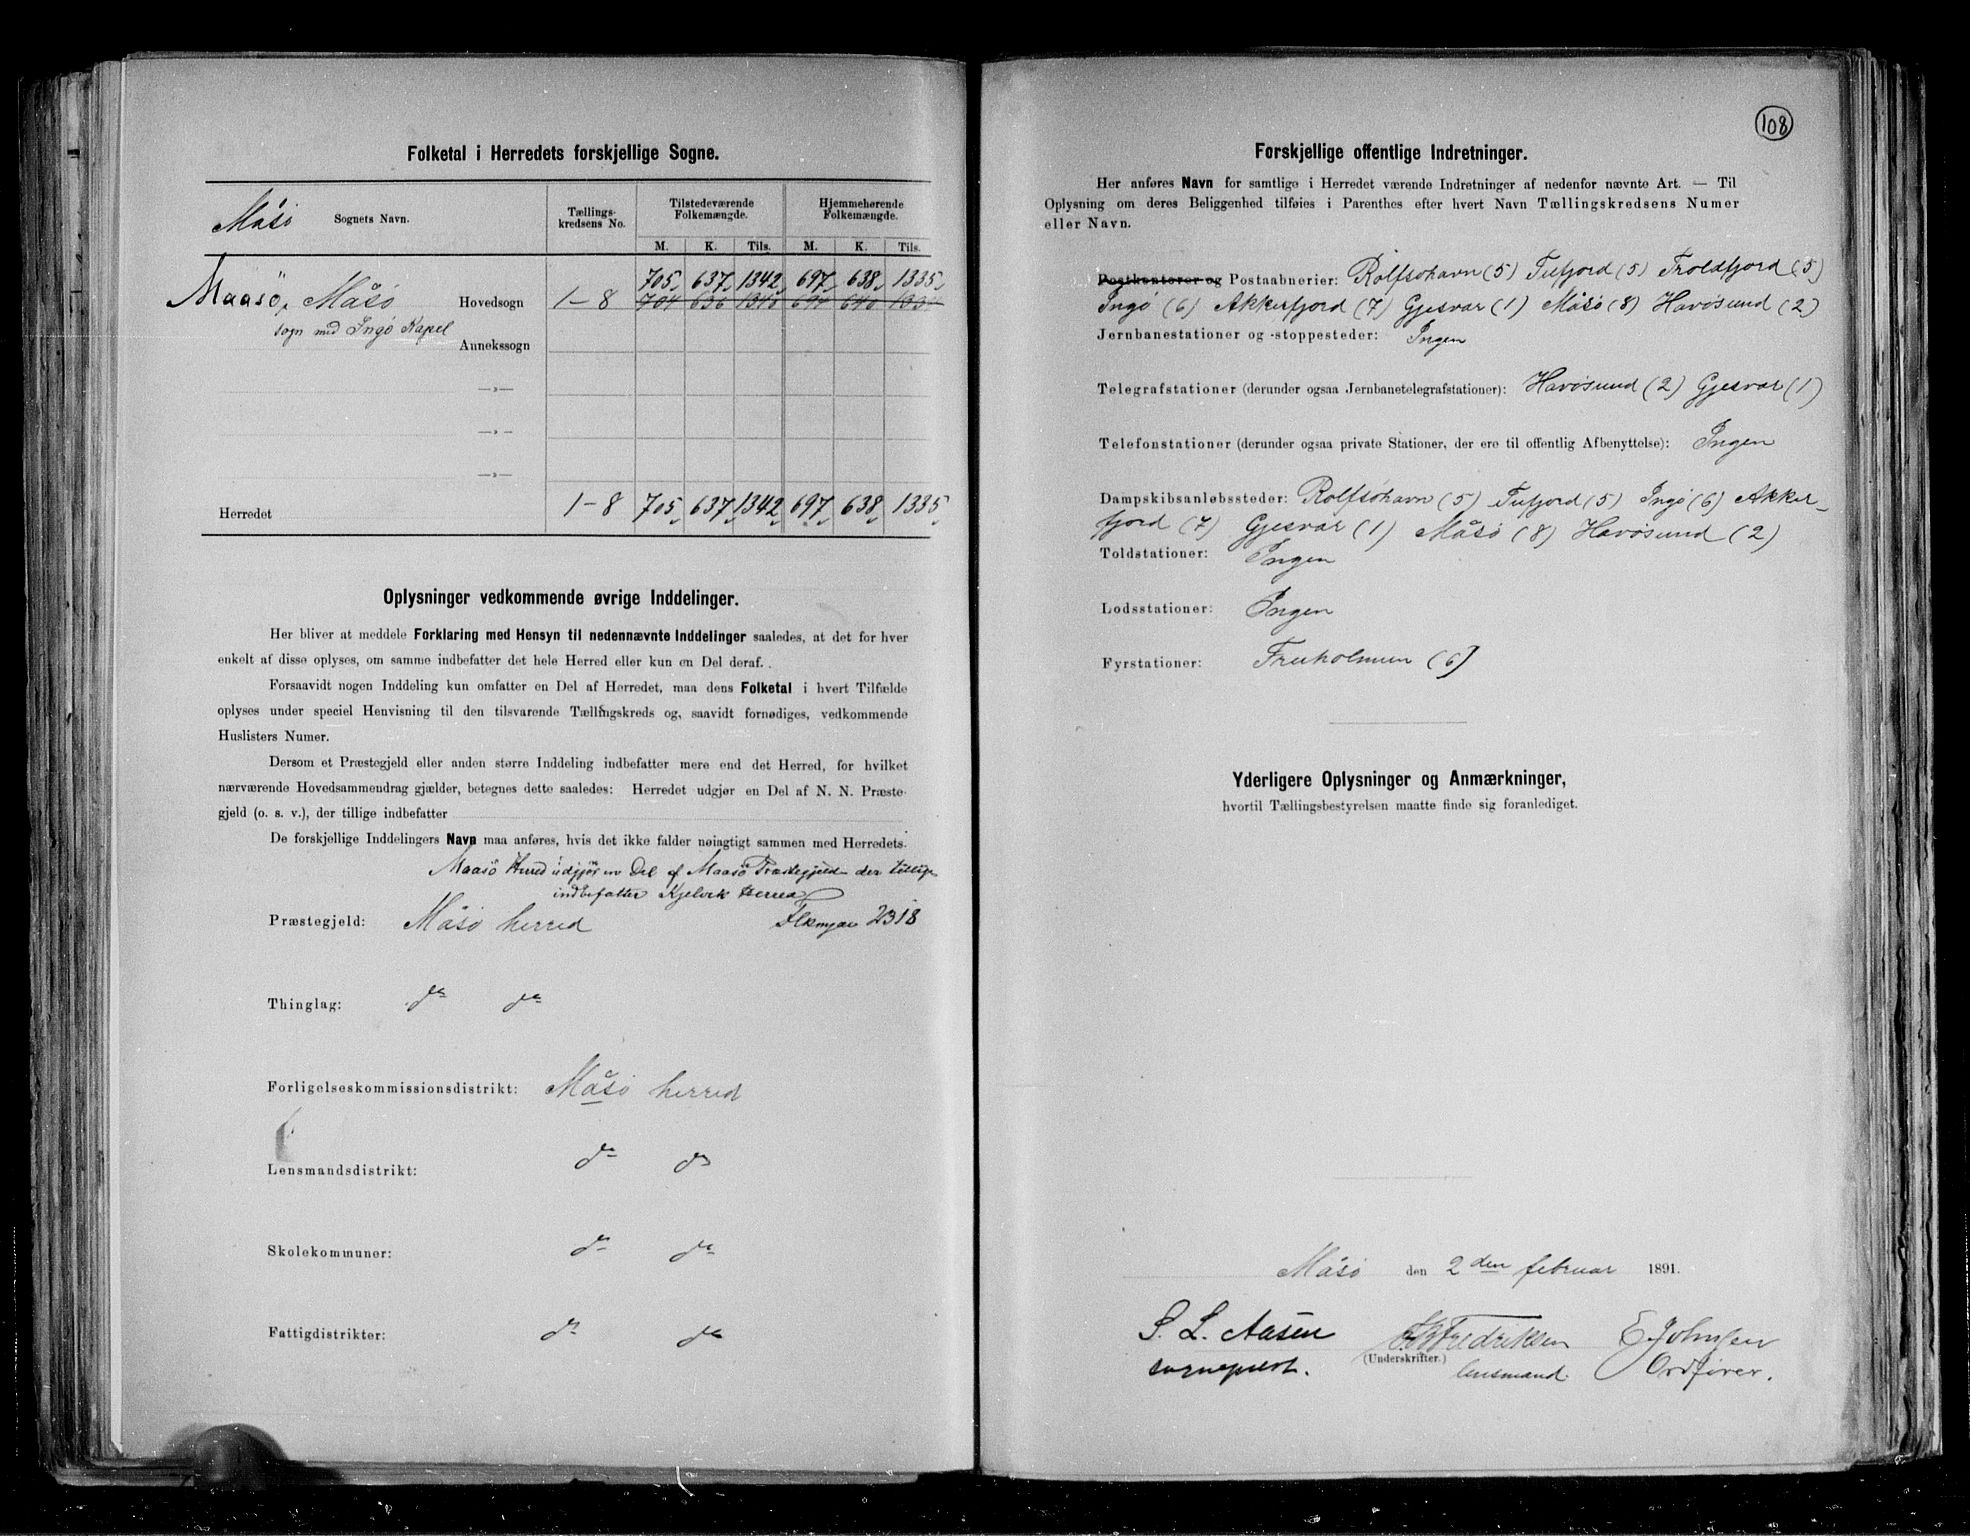 Folketal i Herredets forskjellige Sogne.
Måsö Sognets Navn.
Tællings-
kredsens No.
Tilstedeværende
Folkemængde.
Hjemmehørende
Folkemængde.
M. K. Tils. M. K. Tils.
705 637 1342 697 638 1335
Maasö, Måsö Hovedsogn 1-8 704 636 1340 694 640 1334
sogn med Ingö Kapel
Annekssogn
—»—
—»—
—»—
Herredet 1-8 705 637 1342 697 638 1335
Oplysninger vedkommende øvrige Inddelinger.
Her bliver at meddele Forklaring med Hensyn til nedennævnte Inddelinger saaledes, at det for hver
enkelt af disse oplyses, om samme indbefatter det hele Herred eller kun en Del deraf.
Forsaavidt nogen Inddeling kun omfatter en Del af Herredet, maa dens Folketal i hvert Tilfælde
oplyses under speciel Henvisning til den tilsvarende Tællingskreds og, saavidt fornødiges, vedkommende
Huslisters Numer.
Dersom et Præstegjeld eller anden større Inddeling indbefatter mere end det Herred, for hvilket
nærværende Hovedsammendrag gjælder, betegnes dette saaledes: Herredet udgjør en Del af N. N. Præste-
gjeld (o. s. v.), der tillige indbefatter
De forskjellige Inddelingers Navn maa anføres, hvis det ikke falder nøiagtigt sammen med Herredets.
Maasö Herred udgjör en Del af Maasö Præstegjeld der tillige
indbefatter Kjelvik Herred
Præstegjeld: Måsö herred 2318
Thinglag: do do
Forligelseskommissionsdistrikt: Måsö herred
Lensmandsdistrikt: do do
Skolekommuner: do do
Fattigdistrikter: do do
108
Forskjellige offentlige Indretninger.
Her anføres Navn for samtlige i Herredet værende Indretninger af nedenfor nævnte Art. — Til
Oplysning om deres Beliggenhed tilføies i Parenthes efter hvert Navn Tællingskredsens Numer
eller Navn.
Postkontorer og Postaabnerier: Rolfsöhavn (5) Tufjord (5) Troldfjord (5)
Ingö (6) Akkerfjord (7) Gjesvar (1) Måsö (8) Havösund (2)
Jernbanestationer og -stoppesteder: Ingen
Telegrafstationer (derunder ogsaa Jernbanetelegrafstationer): Havösund (2) Gjesvar (1)
Telefonstationer (derunder ogsaa private Stationer, der ere til offentlig Afbenyttelse): Ingen
Dampskibsanløbssteder: Rolfsöhavn (5) Tufjord (5) Ingö (6) Akker-
fjord (7) Gjesvar (1) Måsö (8) Havösund (2)
Toldstationer: Ingen
Lodsstationer: Ingen
Fyrstationer: Fruholmen (6)
Yderligere Oplysninger og Anmærkninger,
hvortil Tællingsbestyrelsen maatte finde sig foranlediget.
Måsö den 2den februar 1891.
S. L. Aasen Fredriksen E Johnsen
(Underskrifter.)
sogneprest. lensmand. Ordförer.